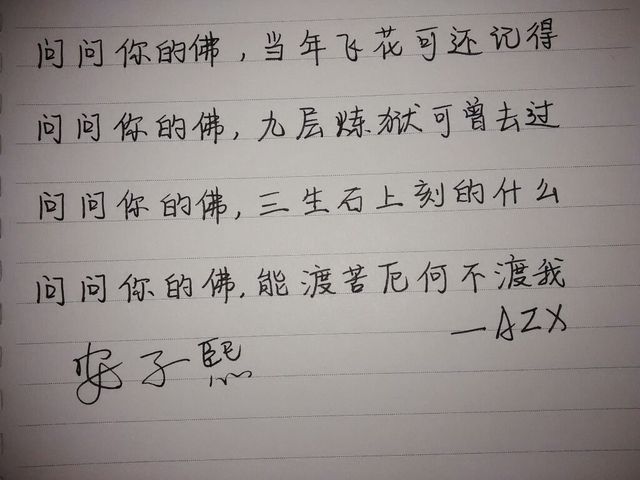 问问你的佛，当年飞花可还记得
问问你的佛，九层炼狱可曾去过
问问你的佛，三生石上刻的什么
问问你的佛，能渡苦厄何不渡我
—AZX
安子熙